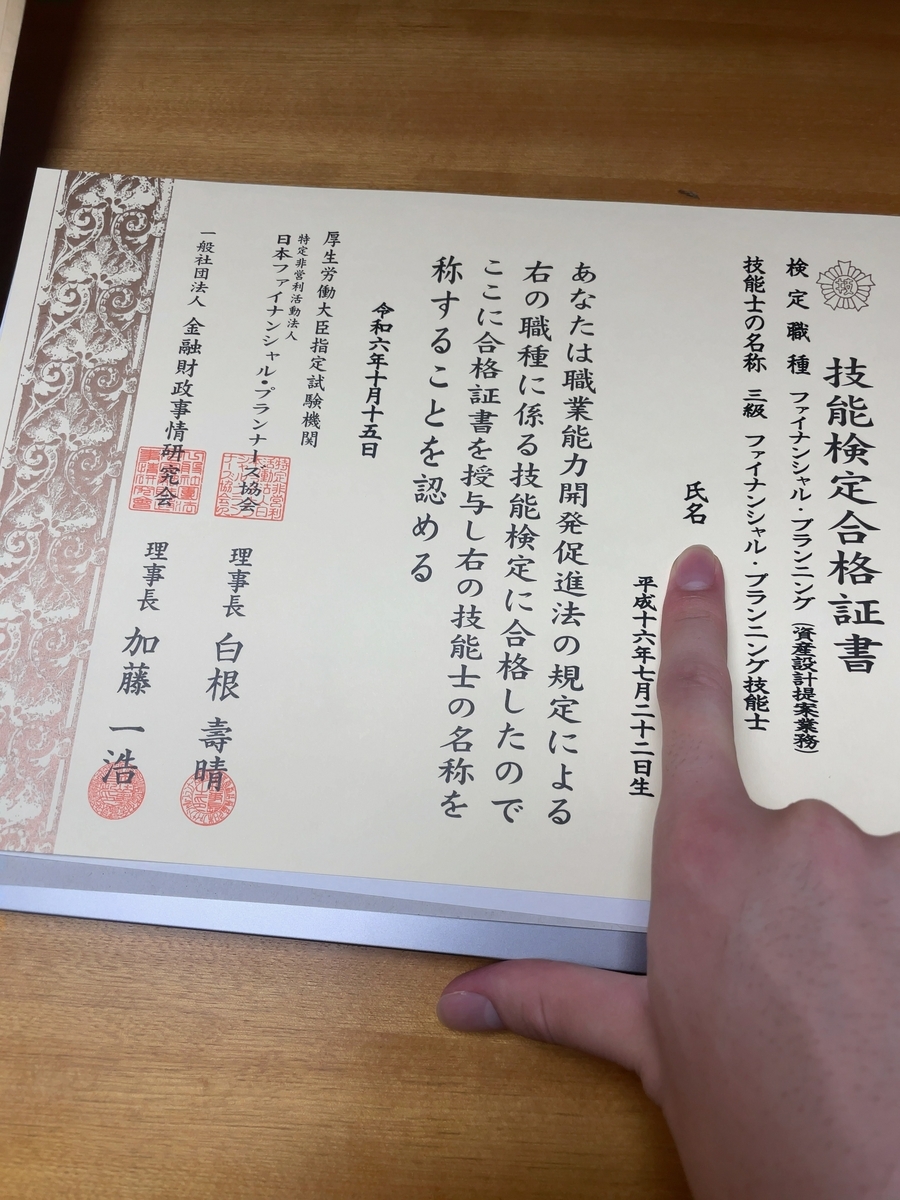 技能検定合格証書
検定職種 ファイナンシャル・プランニング (資産設計提案業務)
技能士の名称 三級 ファイナンシャル・プランニング技能士
氏名
平成十六年七月二十二日生
あなたは職業能力開発促進法の規定による
右の職種に係る技能検定に合格したので
ここに合格証書を授与し右の技能士の名称を
称することを認める
令和六年十月十五日
厚生労働大臣指定試験機関
特定非営利活動法人
日本ファイナンシャル・プランナーズ協会 理事長 白根 壽晴
一般社団法人 金融財政事情研究会 理事長 加藤 一浩